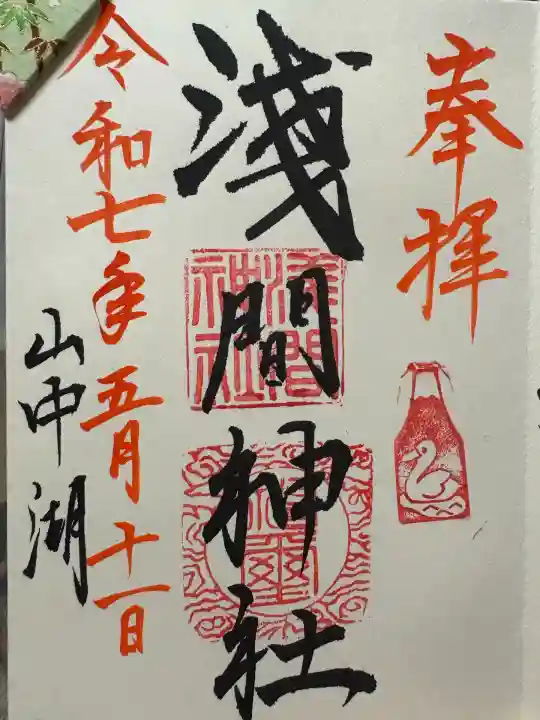 奉拝
淺間神社
淺間
神社
令和七年五月十一日
山中湖